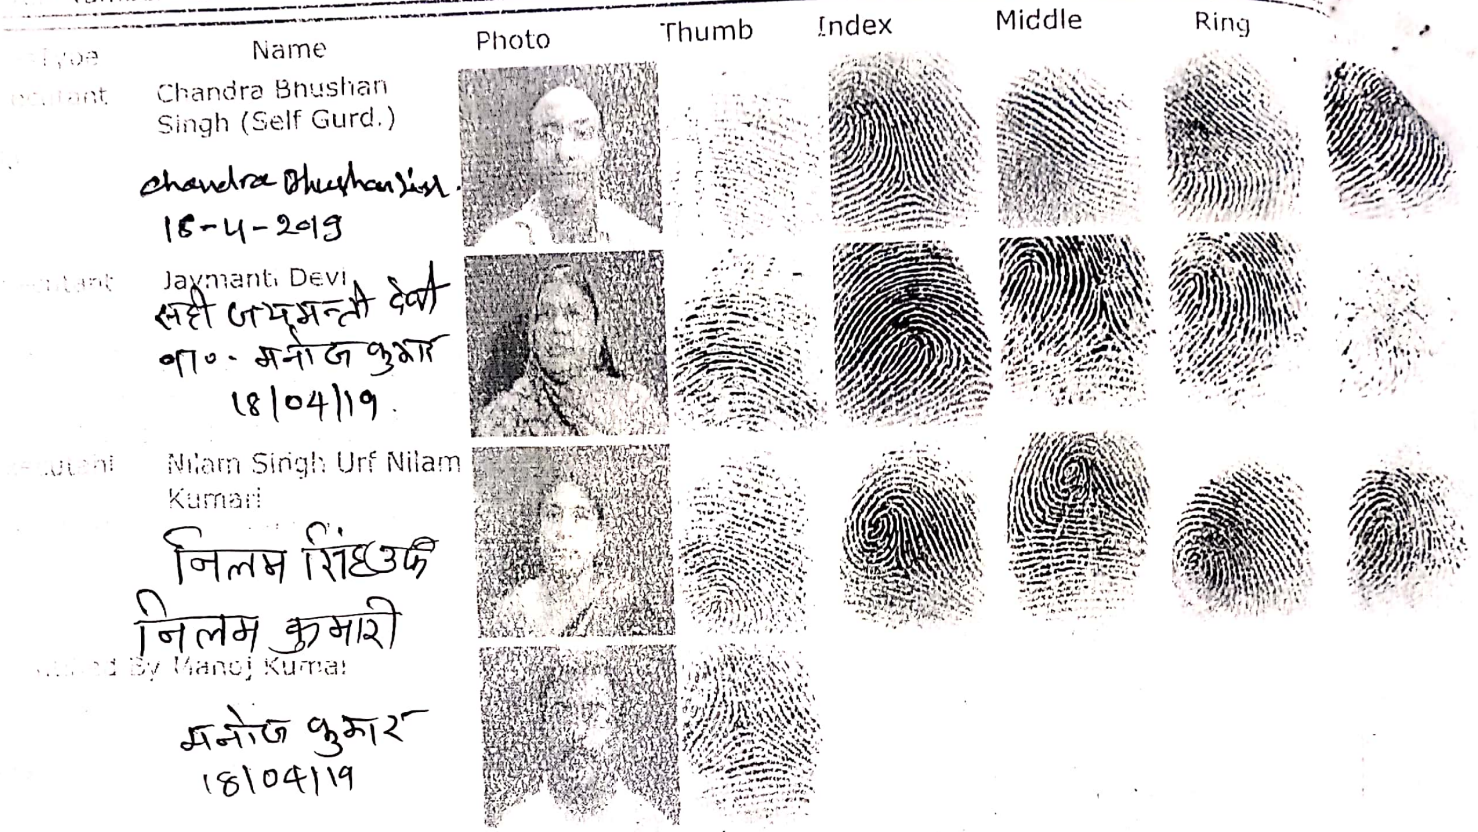 Type Name Photo Thumb Index Middle Ring
Chandra Bhushan
Singh (Self Gurd.)
Chandra Bhushan Singh.
18-4-2019
Jaymanti Devi
सही जयमन्ती देवी
बा०- मनोज कुमार
18/04/19.
Nilam Singh Urf Nilam
Kumari
निलम सिंह उर्फ
निलम कुमारी
By Manoj Kumar
मनोज कुमार
18/04/19